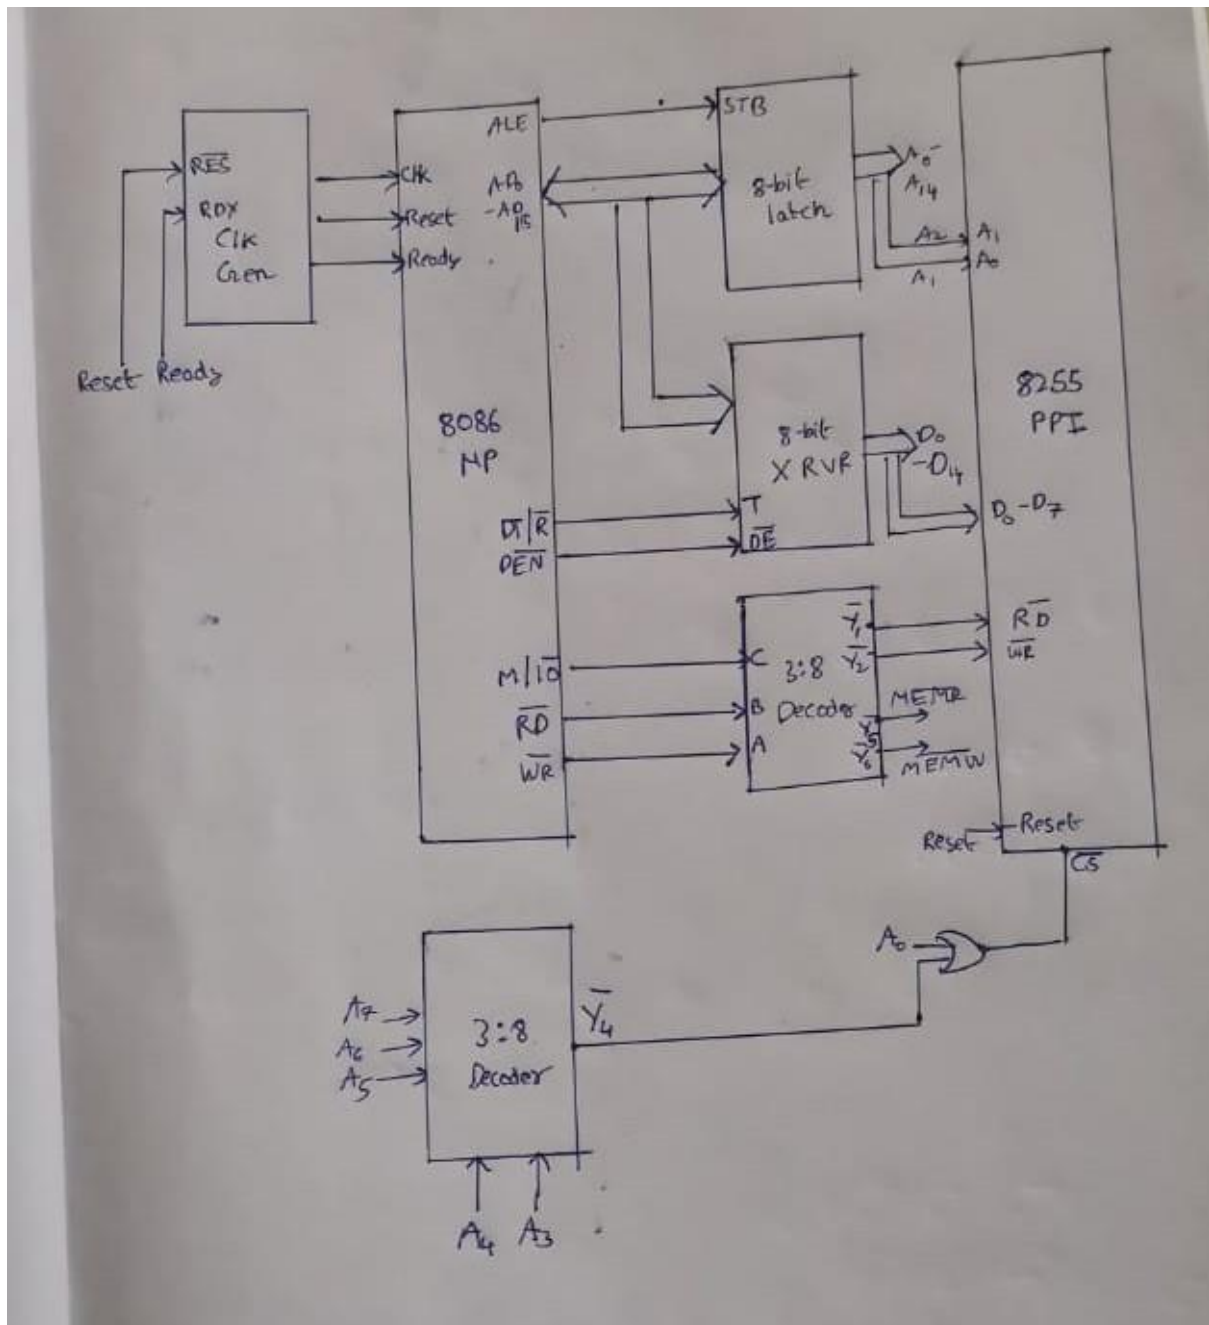 RES
RDX
Clk
Gen
Reset
Ready
Clk
Reset
Ready
ALE
AD₀
-AD₁₅
8086
MP
DT/R̅
D̅E̅N̅
M/I̅O̅
R̅D̅
W̅R̅
STB
8-bit
latch
A₀-
A₁₄
A₂
A₁
A₁
A₀
8-bit
X RVR
T
O̅E̅
D₀
-D₁₄
D₀-D₇
8255
PPI
C
B
A
3:8
Decoder
Y̅₁
Y̅₂
Y̅₅
Y̅₆
MEMR
M̅E̅M̅W̅
R̅D̅
W̅R̅
Reset
Reset
C̅S̅
A₀
A₇
A₆
A₅
3:8
Decoder
Y̅₄
A₄
A₃